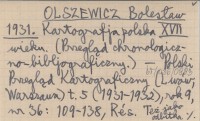 OLSZEWICZ Bolesław
1931. Kartografja polska XVII
wieku. (Przegląd chronologicz-
no-bibljograficzny.) — Polski
Przegląd Kartograficzny (Lwów,
Warszawa) t. 5 (1931-1932), rok 9,
nr 36: 109-138, Rés.
Też jako
odbitka